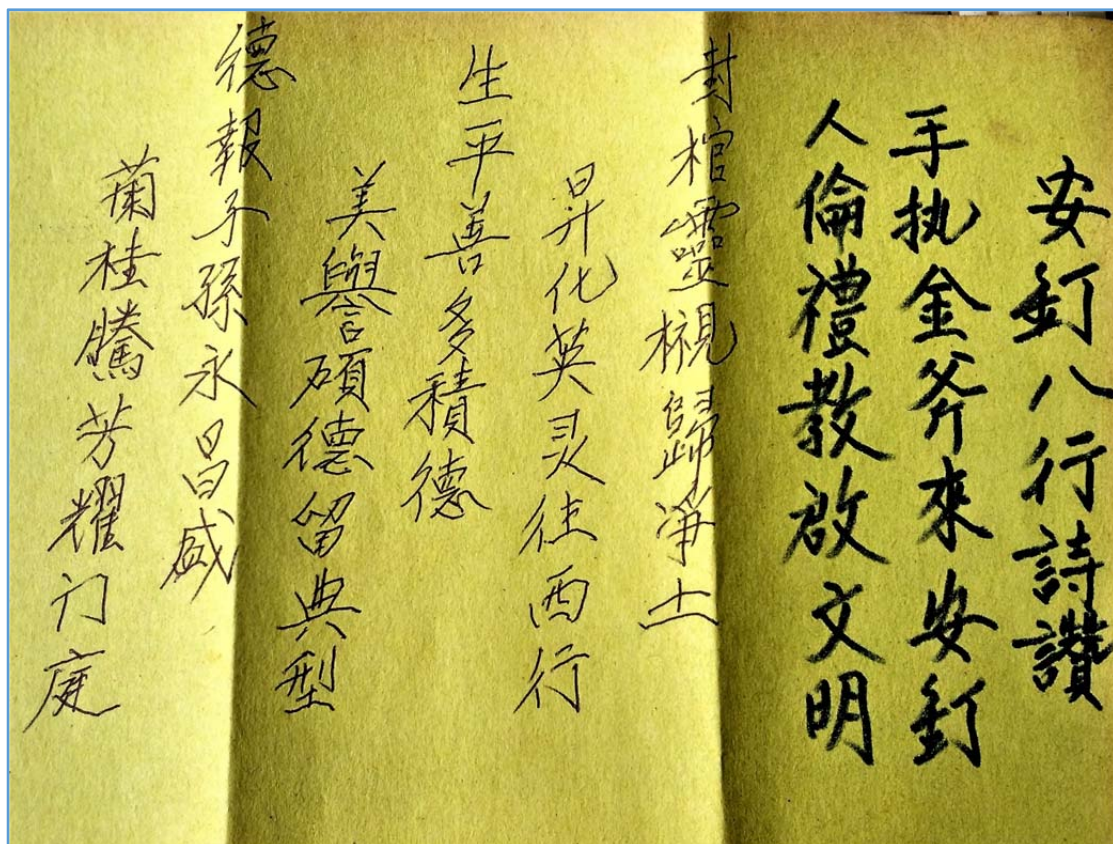 安釘八行詩讚
手执金斧來安釘
人倫禮教啟文明
封棺靈櫬歸凈土
昇化英灵往西行
生平善多積德
美譽碩德留典型
德報子孫永昌盛
蘭桂騰芳耀门庭